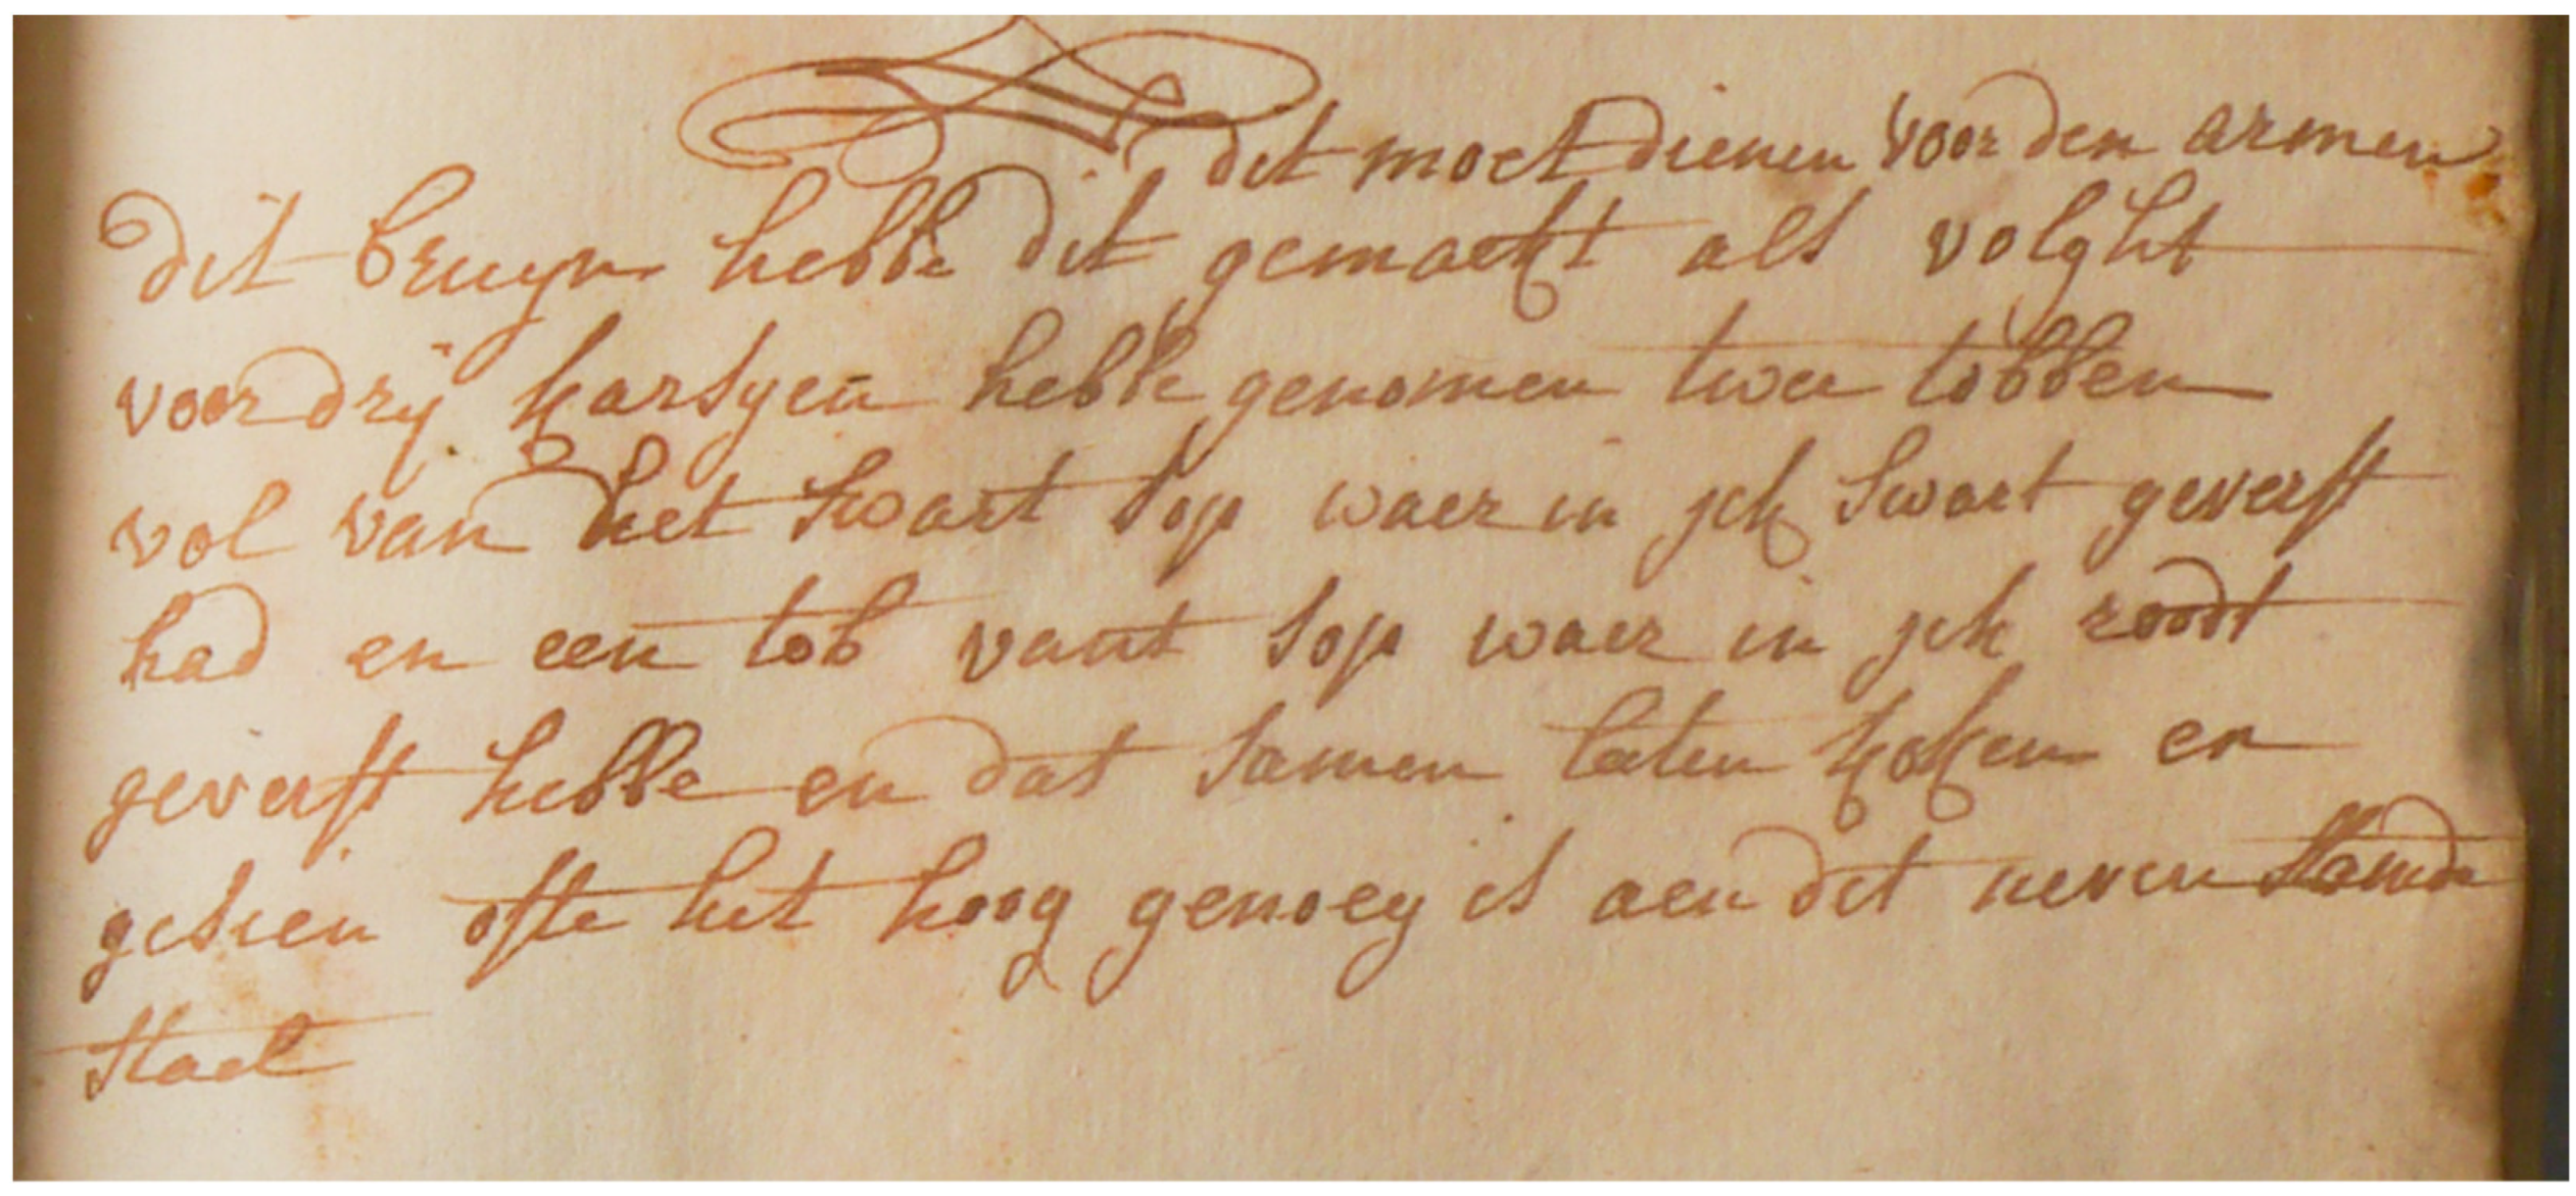 dit moet dienen voor den armen
dit bruyn hebbe dit gemaekt als volght
voor drij karsyen hebbe genomen twee tobben
vol van het swart sop waer in jck swart geverft
had en een tob vant sop waer in jck roodt
geverft hebbe en dat samen laten koken en
gesien ofte het hoog genoeg is aen dit neven staende
stael